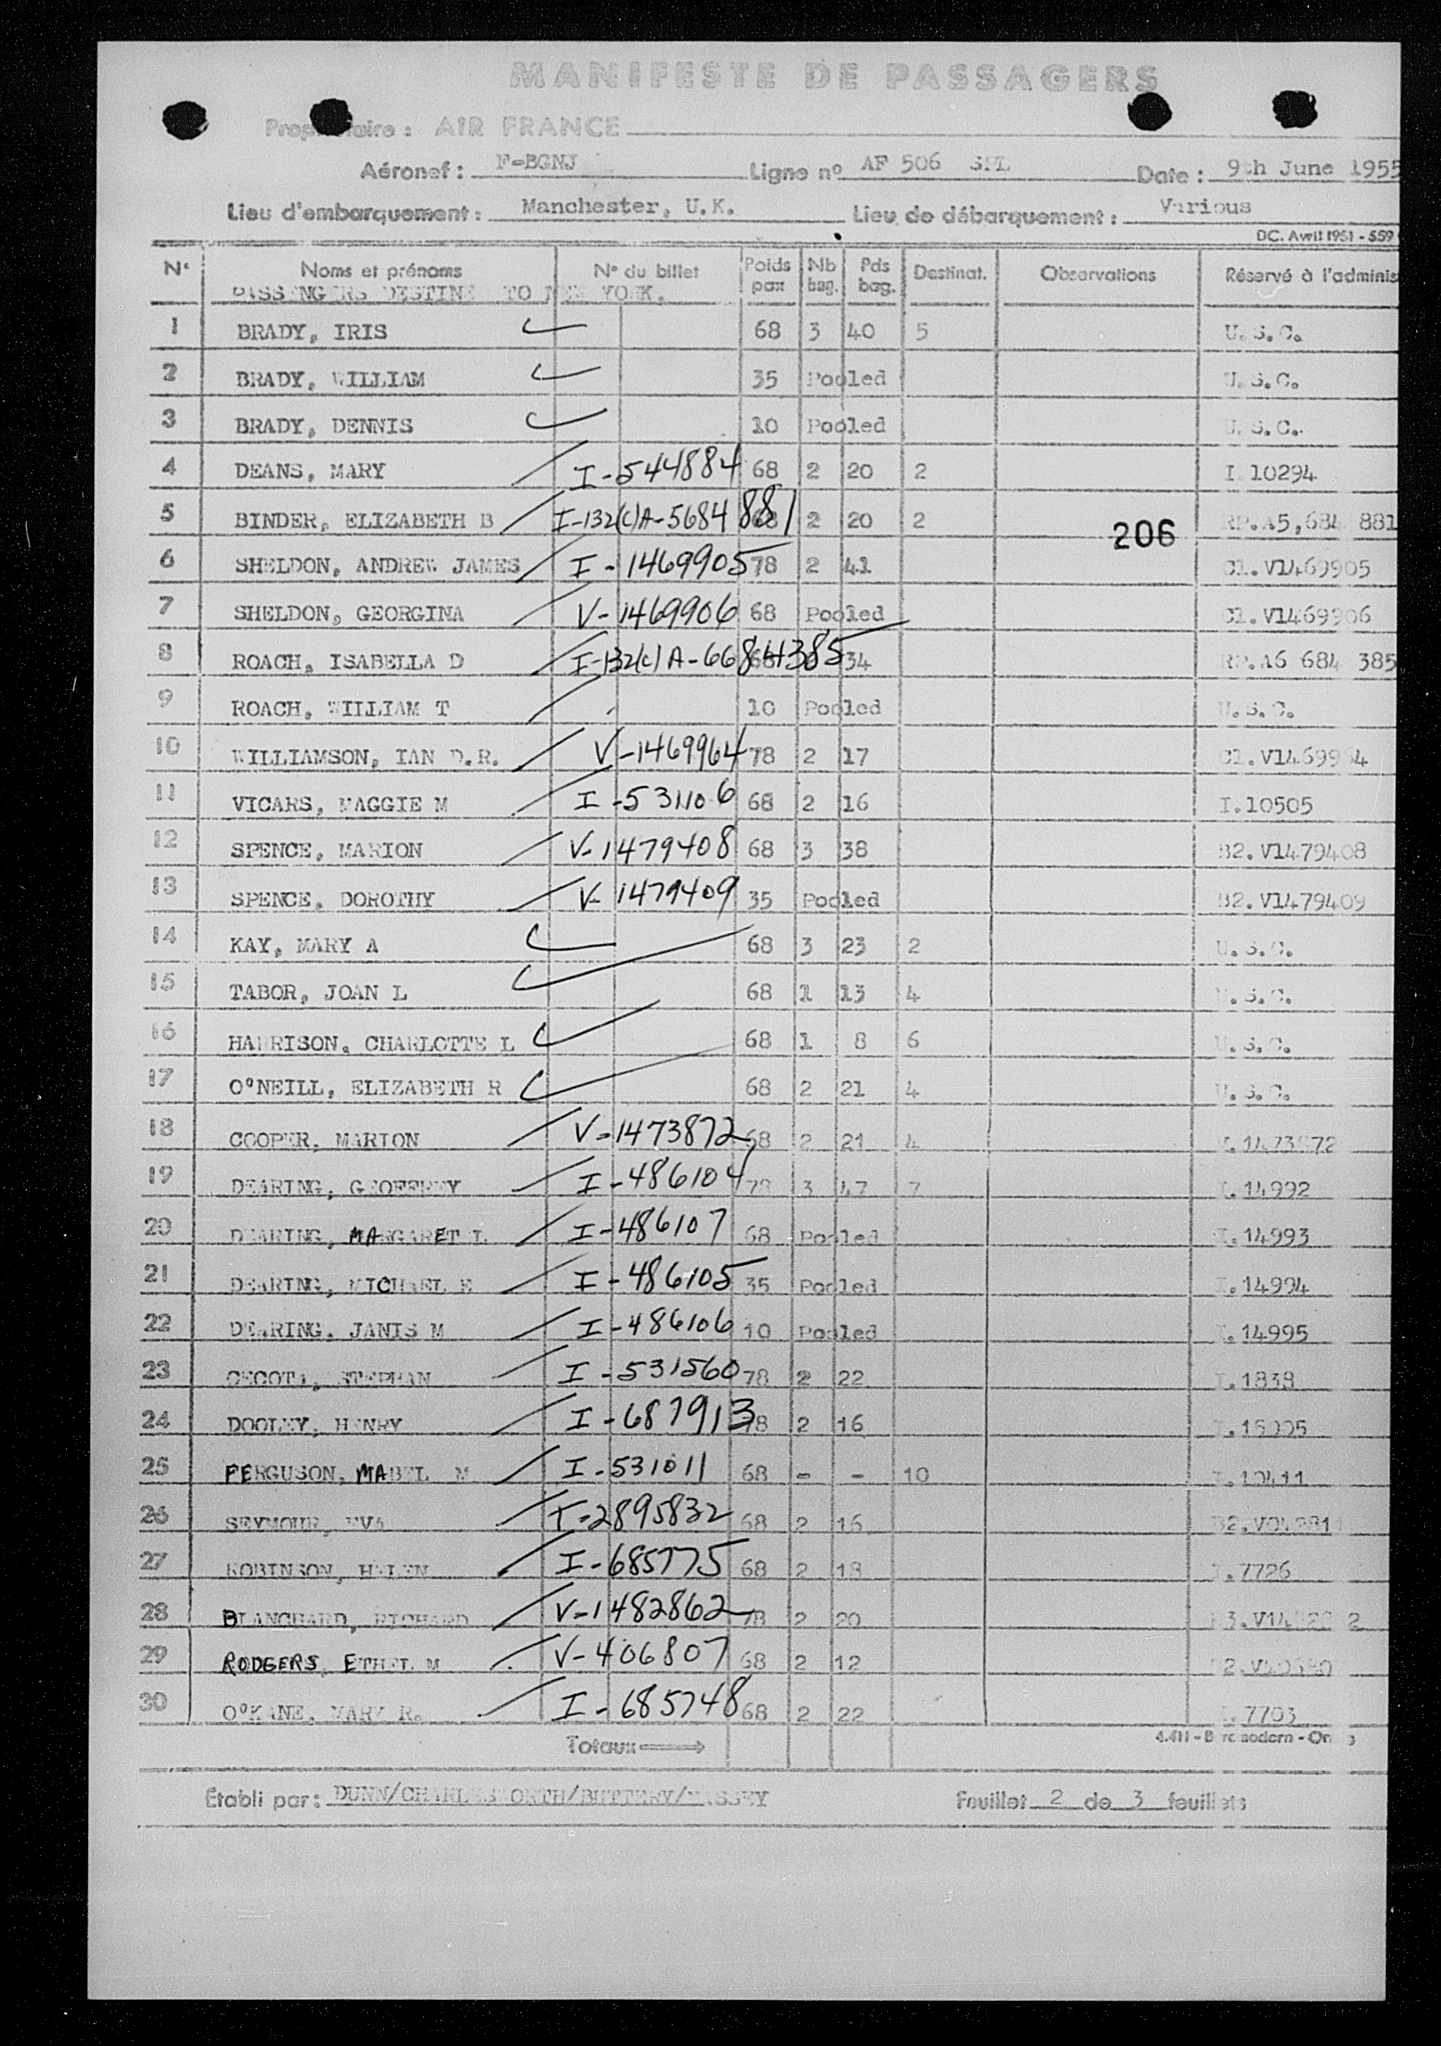 MANIFESTE DE PASSAGERS
Propriétaire : AIR FRANCE
Aéronef : F-BGNJ Ligne nº AF 506 SPL Date : 9th June 1955
Lieu d'embarquement : Manchester, U.K. Lieu de débarquement : Various
DC. Avril 1951 - 559
Nº Noms et prénoms Nº du billet Poids pax Nb bag. Pds bag. Destinat. Observations Réservé à l'adminis
PASSENGERS DESTINE TO NEW YORK.
1 BRADY, IRIS 68 3 40 5 U.S.C.
2 BRADY, WILLIAM 35 Pooled U.S.C.
3 BRADY, DENNIS 10 Pooled U.S.C.
4 DEANS, MARY I-544884 68 2 20 2 I 10294
5 BINDER, ELIZABETH B I-132(c)A-5684881 68 2 20 2 RP.A5,684 881
206
6 SHELDON, ANDREW JAMES I-1469905 78 2 41 C1.V1469905
7 SHELDON, GEORGINA V-1469906 68 Pooled C1.V1469906
8 ROACH, ISABELLA D I-132(c)A-6684385 68 34 RP.A6 684 385
9 ROACH, WILLIAM T 10 Pooled U.S.C.
10 WILLIAMSON, IAN D.R. V-1469964 78 2 17 C1.V1469964
11 VICARS, MAGGIE M I-531106 68 2 16 I.10505
12 SPENCE, MARION V-1479408 68 3 38 B2.V1479408
13 SPENCE, DOROTHY V-1479409 35 Pooled B2.V1479409
14 KAY, MARY A 68 3 23 2 U.S.C.
15 TABOR, JOAN L 68 1 13 4 U.S.C.
16 HARRISON, CHARLOTTE L 68 1 8 6 U.S.C.
17 O'NEILL, ELIZABETH R 68 2 21 4 U.S.C.
18 COOPER, MARION V-1473872 68 2 21 4 1473872
19 DEARING, GEOFFREY I-486104 78 3 47 7 I.14992
20 DEARING, MARGARET L I-486107 68 Pooled I.14993
21 DEARING, MICHAEL E I-486105 35 Pooled I.14994
22 DEARING, JANIS M I-486106 10 Pooled I.14995
23 CECOTA, STEPHAN I-531560 78 2 22 I.1838
24 DOOLEY, HENRY I-687913 78 2 16
25 FERGUSON, MABEL M I-531011 68 - - 10
26 SEYMOUR, EVA T-2895832 68 2 16
27 ROBINSON, HELEN I-685775 68 2 18 I.7726
28 BLANCHARD, RICHARD V-1482862 78 2 20
29 RODGERS, ETHEL M V-406807 68 2 12
30 O'KANE, MARY R. I-685748 68 2 22 I.7703
Totaux
Établi par : DUNN/CHARLESWORTH/BUTTERY/MASSEY Feuillet 2 de 3 feuillets